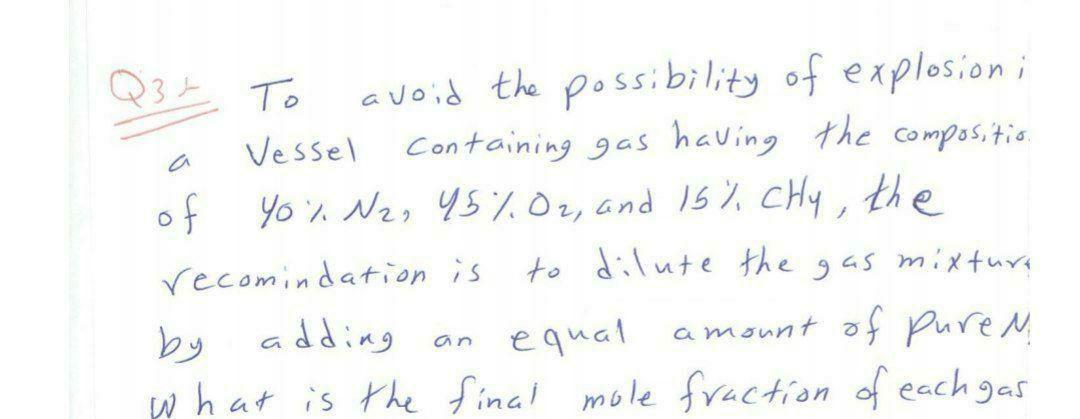 Q3:- To avoid the possibility of explosion i
a Vessel containing gas having the compositio
of 40% N2, 45% O2, and 15% CH4, the
recomindation is to dilute the gas mixture
by adding an equal amount of pure N
what is the final mole fraction of each gas